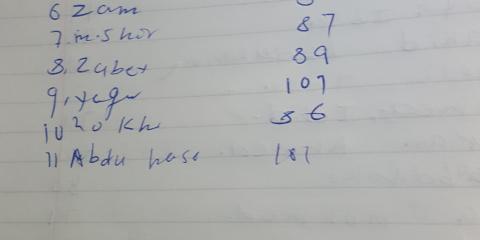 6 Zam
7. m. Shir 87
8. Zaber 89
9. yagu 107
10 20 Kh 86
11 Abdu hase 101